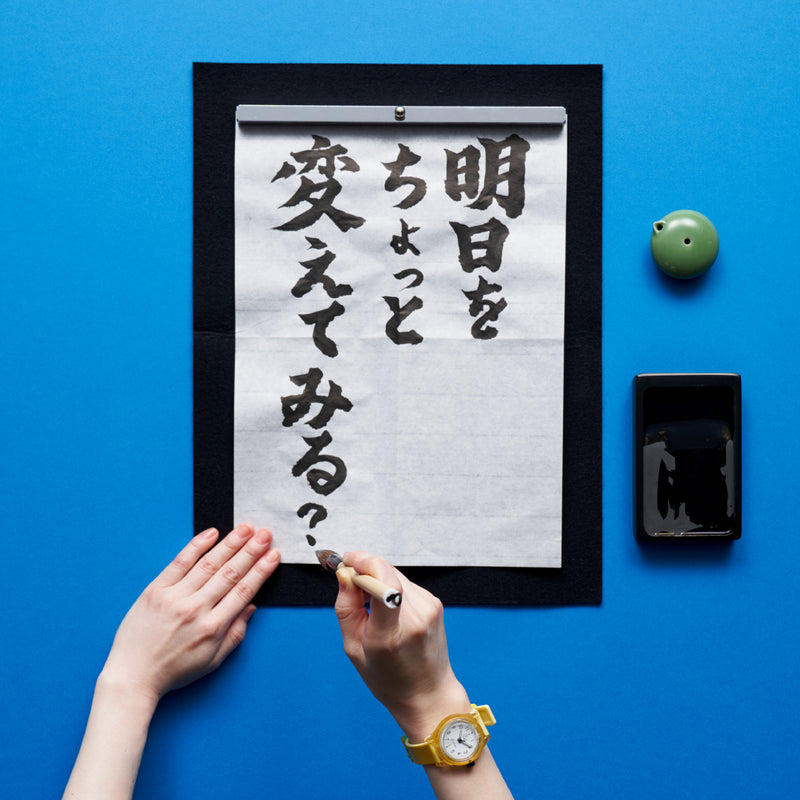 明日を
ちょっと
変えてみる?